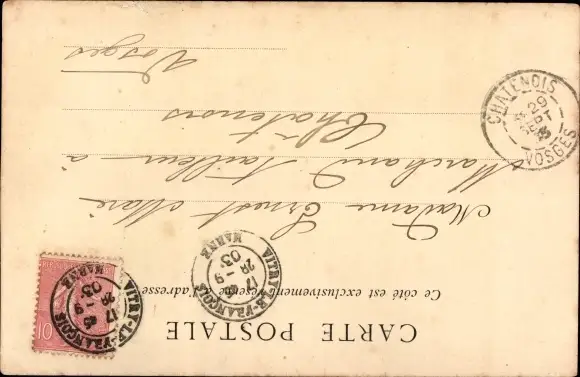 CARTE POSTALE
Ce côté est exclusivement réservé à l'adresse
Madame Ernest
Marchand Tailleur à
Châtenois
Vosges
VITRY-LE-FRANÇOIS
17 45
28 - 9
03
MARNE
VITRY-LE-FRANÇOIS
17 45
28 - 9
03
MARNE
10
CHATENOIS
29
SEPT
03
VOSGES